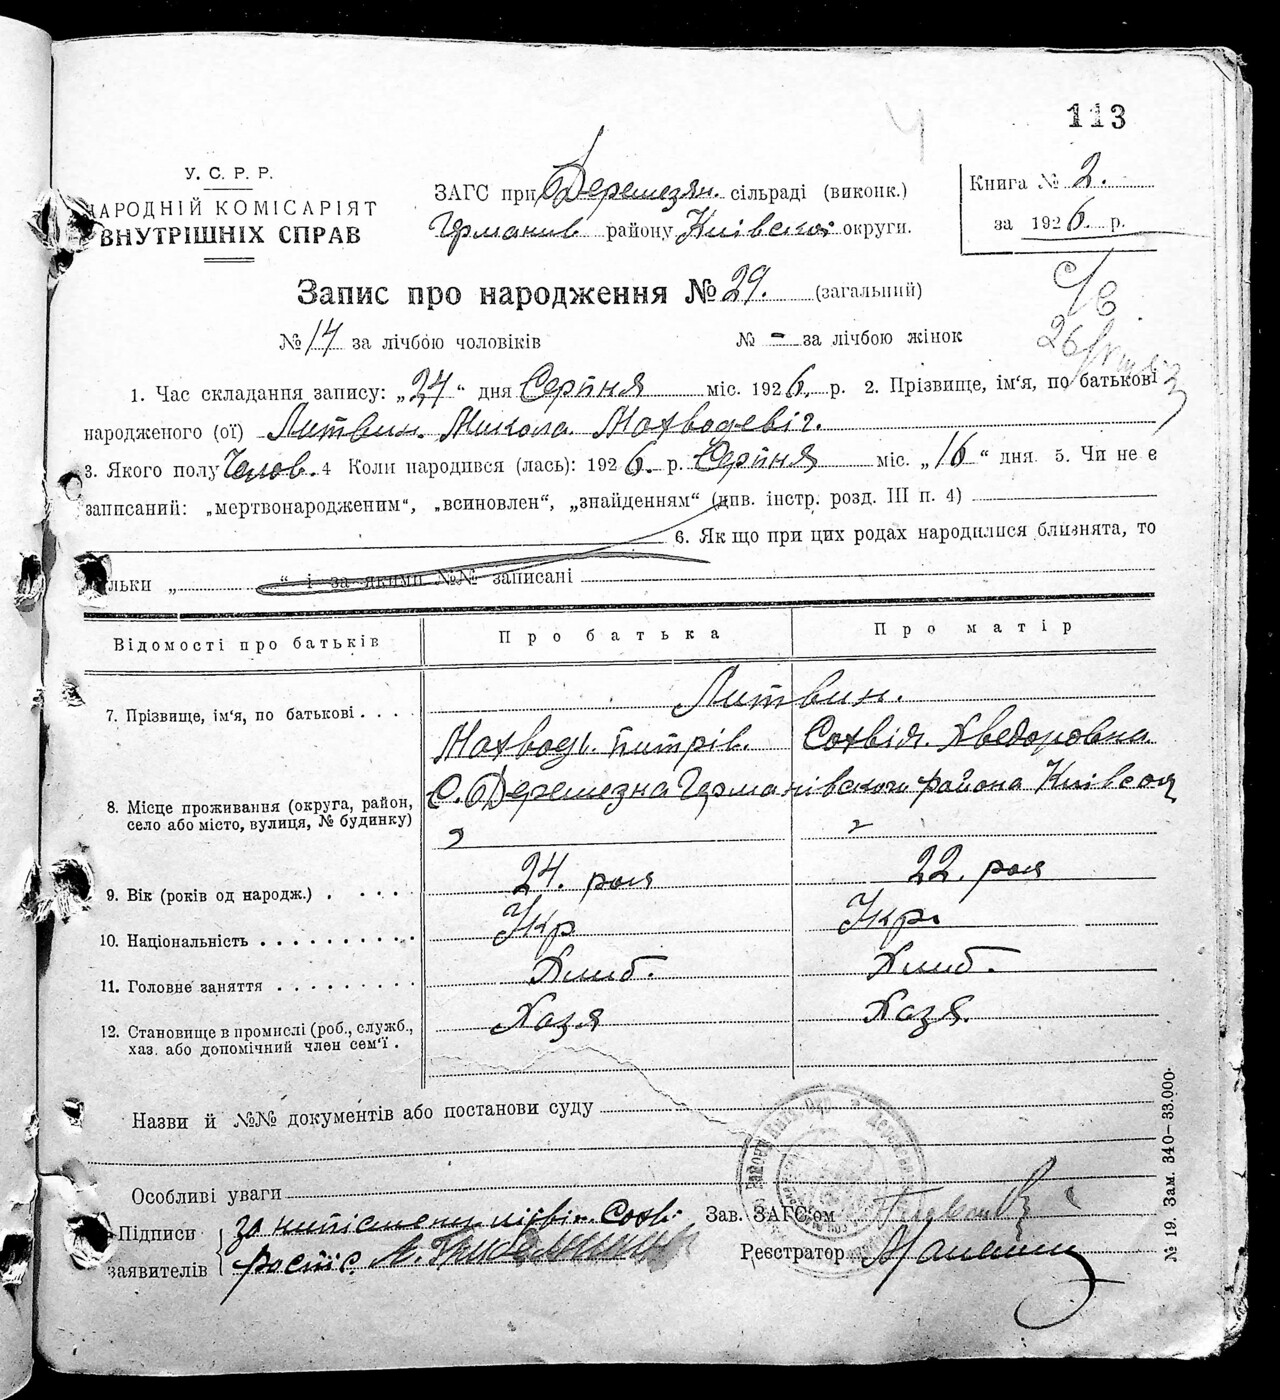 113
У. С. Р. Р.
НАРОДНІЙ КОМІСАРІЯТ
ВНУТРІШНІХ СПРАВ
ЗАГС при Деремезян. сільраді (виконк.)
Германів району Київської округи.
Книга № 2.
за 1926 р.
Запис про народження № 29. (загальний)
№ 14 за лічбою чоловіків № - за лічбою жінок
1. Час складання запису: „24“ дня Серпня міс. 1926 р. 2. Прізвище, ім'я, по батькові
народженого (ої) Литвин. Микола Мохводевіч.
3. Якого полу Челов. 4 Коли народився (лась): 1926. р. Серпня міс. „16“ дня. 5. Чи не є
записаний: „мертвонародженим“, „всиновлен“, „знайденням“ (див. інстр. розд. III п. 4)
6. Як що при цих родах народилися близнята, то
кільки „ “ і за якими №№ записані
Відомості про батьків Про батька Про матір
7. Прізвище, ім'я, по батькові . . . . Литвин.
Мохводь. Питрів. Сохвія. Хведоровна
8. Місце проживання (округа, район, село або місто, вулиця, № будинку) С. Деремезна Германівского района Київской
9. Вік (років од народж.) . . . . . 24. роля 22. роля
10. Національність . . . . . . . . . . Укр Укр.
11. Головне заняття . . . . . . . . . Хлиб. Хлиб.
12. Становище в промислі (роб., служб., хаз. або допомічний член сем'ї . Хазя Хазя.
Назви й №№ документів або постанови суду
Особливі уваги
Підписи заявителів за нитісмену
роспіс.
Зав. ЗАГС'ом
Реєстратор
№ 19. Зам. 340—33.000.